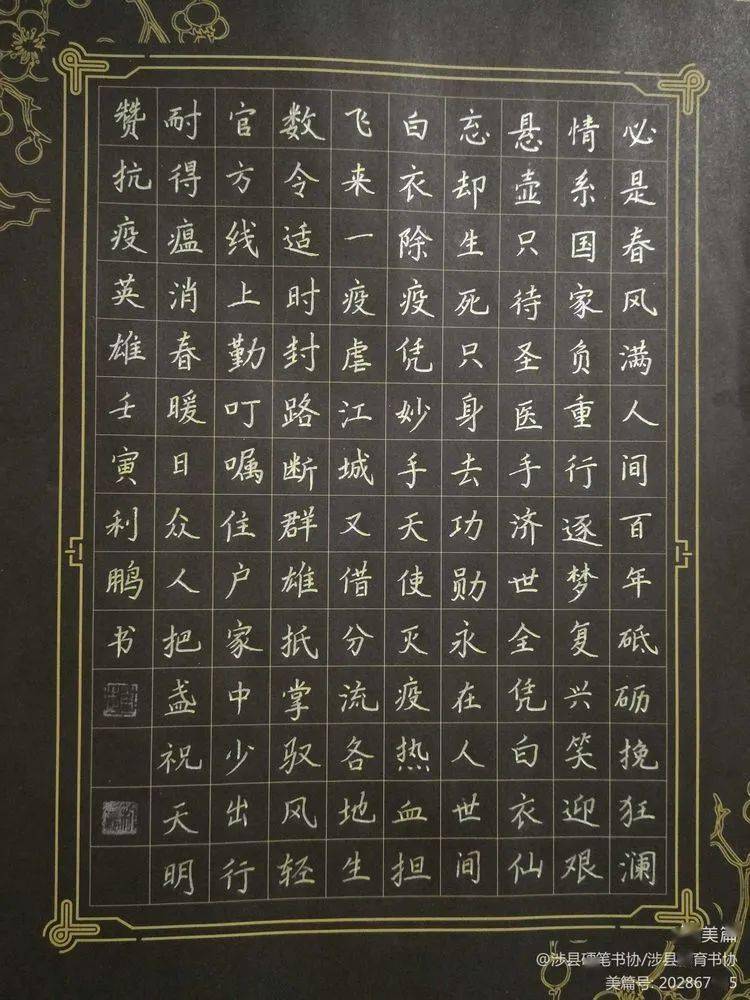 必是春风满人间百年砥砺挽狂澜
情系国家负重行逐梦复兴笑迎艰
悬壶只待圣医手济世全凭白衣仙
忘却生死只身去功勋永在人世间
白衣除疫凭妙手天使灭疫热血担
飞来一疫虐江城又借分流各地生
数令适时封路断群雄抵掌驭风轻
官方线上勤叮嘱住户家中少出行
耐得瘟消春暖日众人把盏祝天明
赞抗疫英雄壬寅利鹏书
美篇
@涉县硬笔书协/涉县 育书协
美篇号: 202867 5